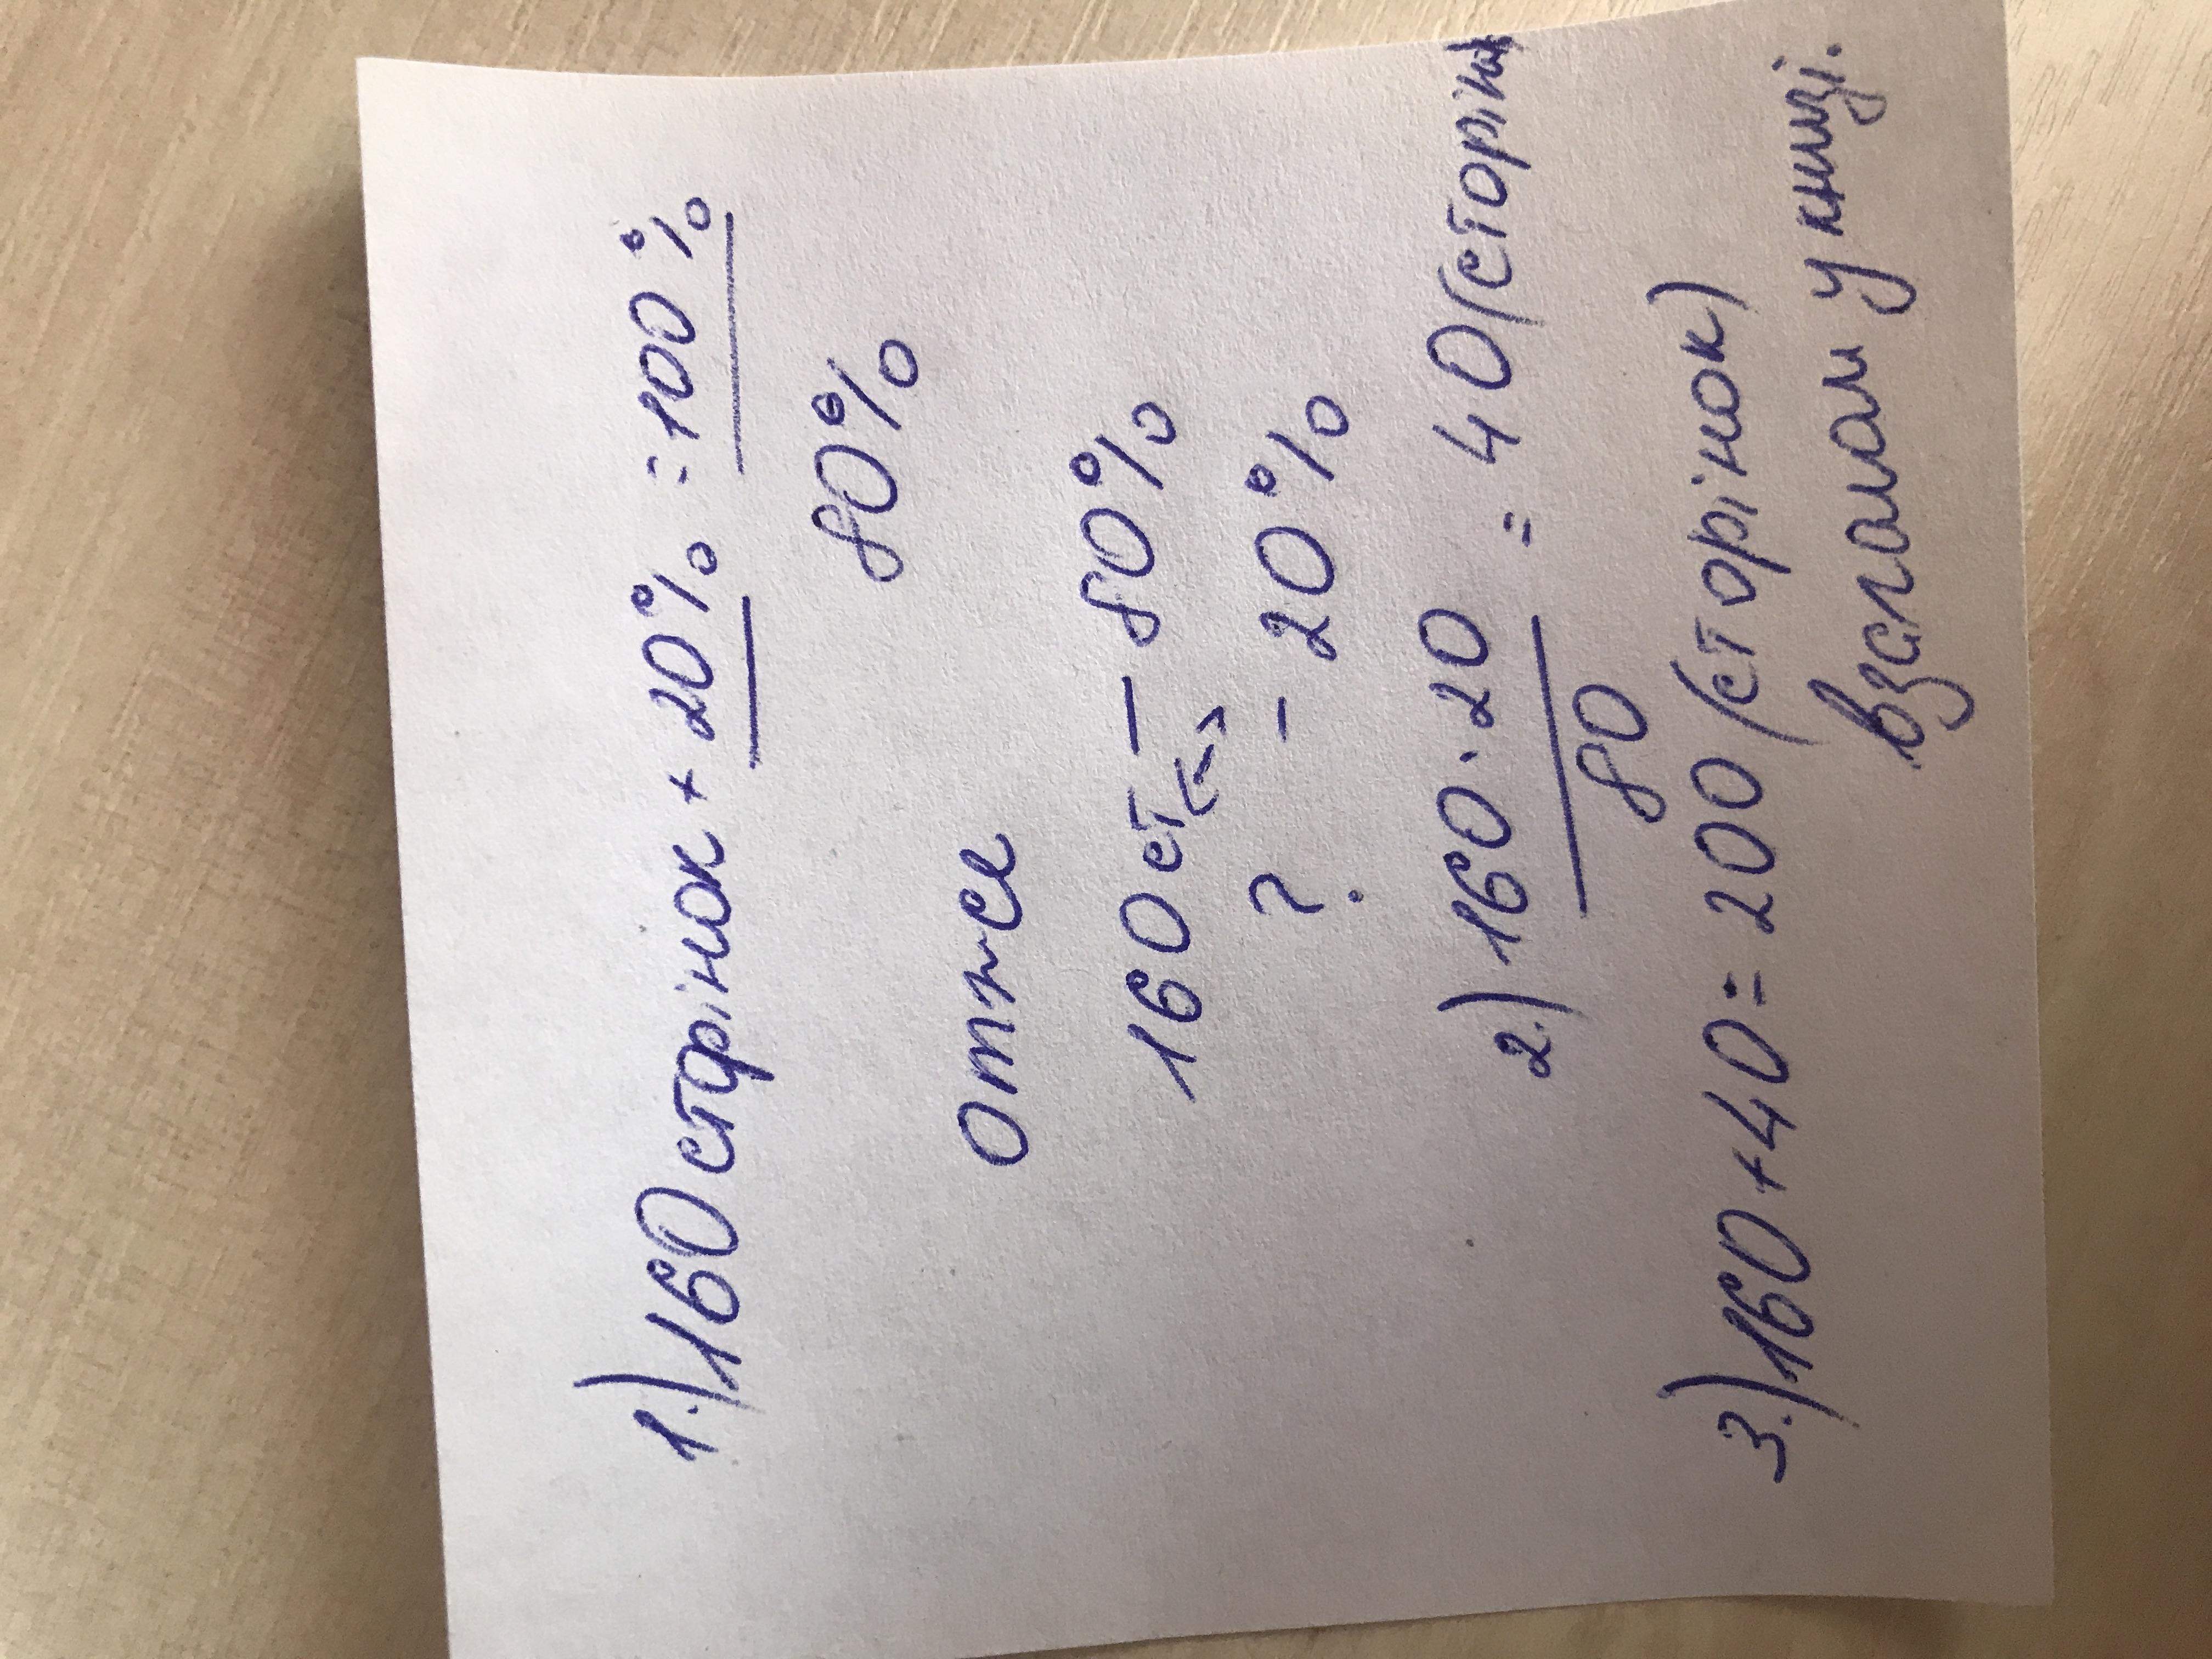 1.) 160 сторінок + 20% = 100%
80%
Отже
160 ст(-) — 80%
? - 20%
2.) 160·20 / 80 = 40 (сторінок
3.) 160 + 40 = 200 (сторінок)
взагалом у книзі.